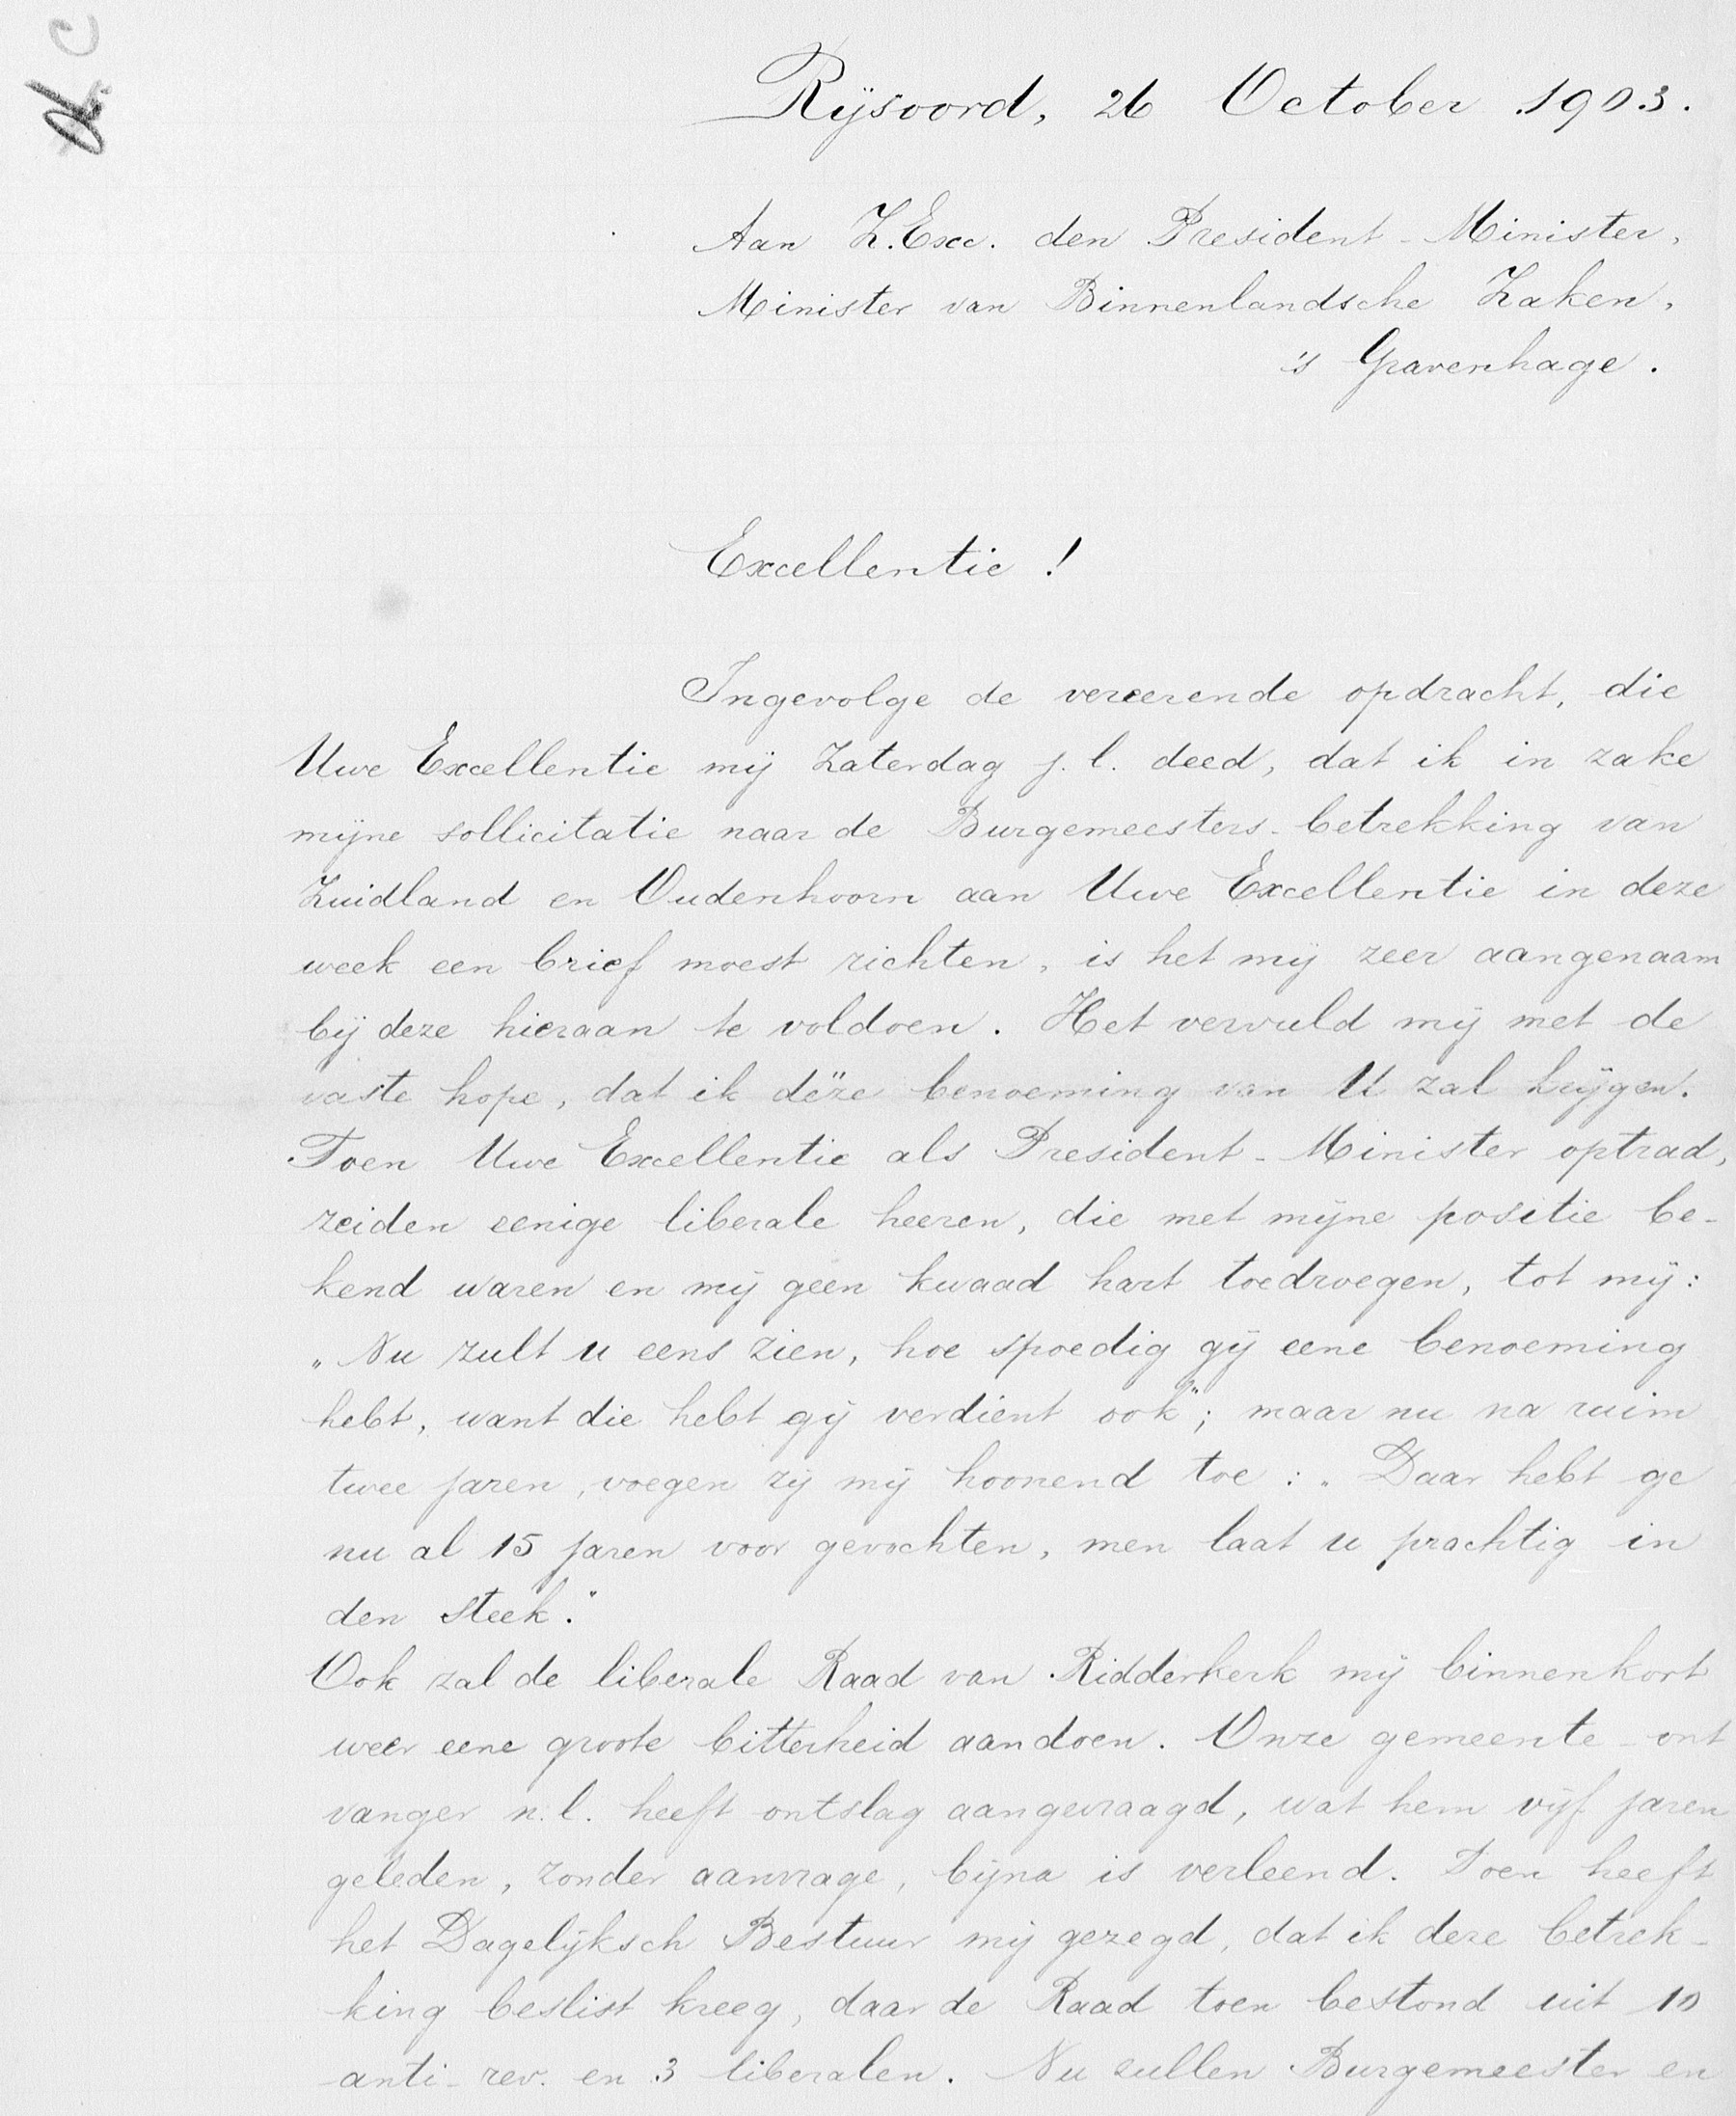 Rijsoord, 26 October 1903.
Aan Z.Exc. den President-Minister,
Minister van Binnenlandsche Zaken,
's Gravenhage.
Excellentie!
Ingevolge de vereerende opdracht, die
Uwe Excellentie mij Zaterdag j.l. deed, dat ik in zake
mijne sollicitatie naar de Burgemeesters-betrekking van
Zuidland en Oudenhoorn aan Uwe Excellentie in deze
week een brief moest richten, is het mij zeer aangenaam
bij deze hieraan te voldoen. Het vervuld mij met de
vaste hope, dat ik dëze benoeming van U zal krijgen.
Toen Uwe Excellentie als President-Minister optrad,
zeiden eenige liberale heeren, die met mijne positie be-
kend waren en mij geen kwaad hart toedroegen, tot mij:
„Nu zult u eens zien, hoe spoedig gij eene benoeming
hebt, want die hebt gij verdient ook"; maar nu na ruim
twee jaren, voegen zij mij hoonend toe: „Daar hebt ge
nu al 15 jaren voor gevochten, men laat u prachtig in
den steek."
Ook zal de liberale Raad van Ridderkerk mij binnenkort
weer eene groote bitterheid aandoen. Onze gemeente-ont
vanger n.l. heeft ontslag aangevraagd, wat hem vijf jaren
geleden, zonder aanvrage, bijna is verleend. Toen heeft
het Dagelijksch Bestuur mij gezegd, dat ik deze betrek-
king beslist kreeg, daar de Raad toen bestond uit 10
anti-rev. en 3 liberalen. Nu zullen Burgemeester en